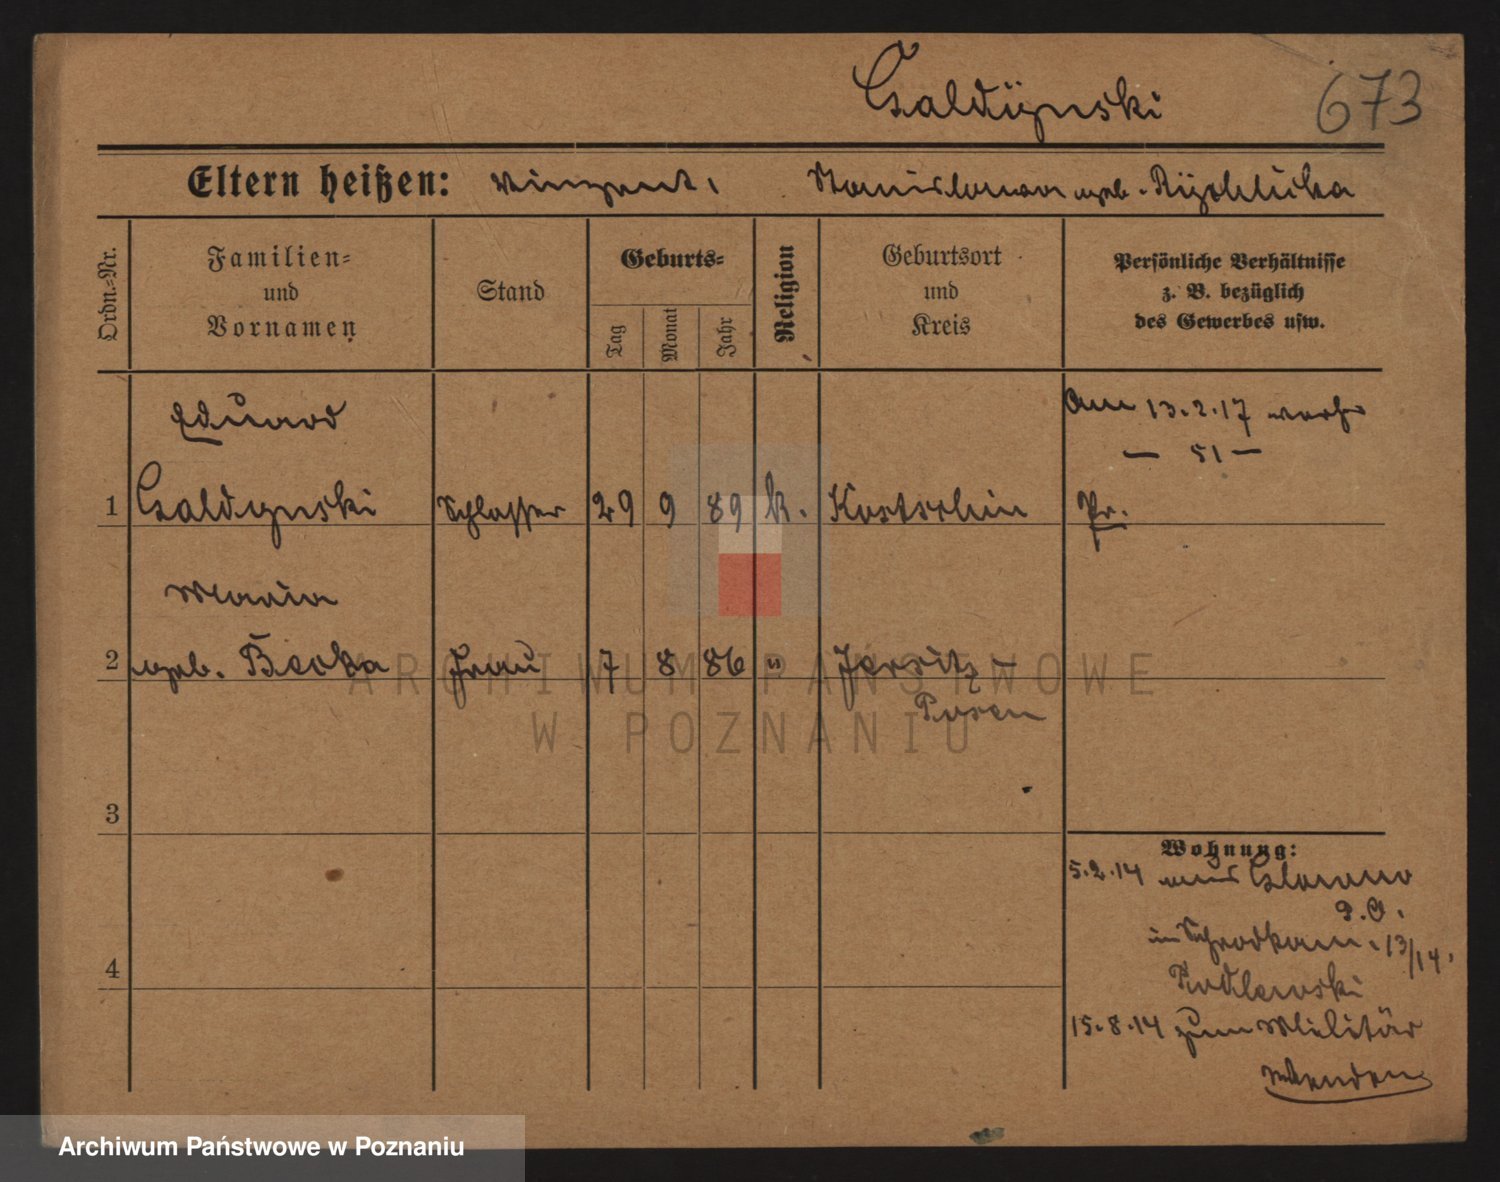 Czaldÿnski 673
Eltern heißen: Vinzent, Stanislawa geb. Rÿchlicka
Ordn.-Nr.
Familien-
und
Vornamen
Stand
Geburts-
Tag
Monat
Jahr
Religion
Geburtsort
und
Kreis
Persönliche Verhältnisse
z. B. bezüglich
des Gewerbes usw.
Eduard
1 Czaldynski Schlosser 29 9 89 k. Kostschin
Am 13.2.17
— 51 —
Pr.
Maria
2 geb. Frau 7 8 86 " Jersitz -
Posen
3
4
Wohnung:
5.2.14 aus
P.O.
im Schrodkam. 13/14.
15.8.14 zum Militär
Wenden
ARCHIWUM PAŃSTWOWE
W POZNANIU
Archiwum Państwowe w Poznaniu